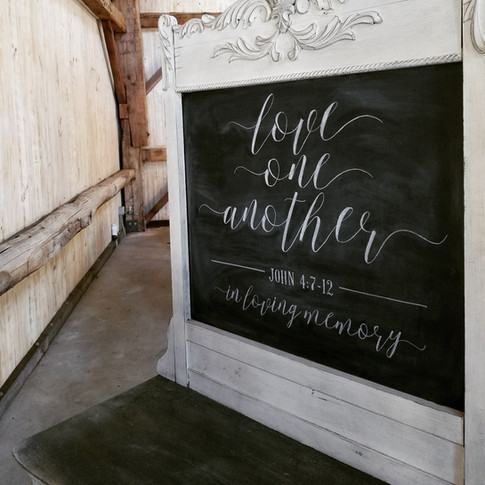 love
one
another
JOHN 4:7-12
in loving memory